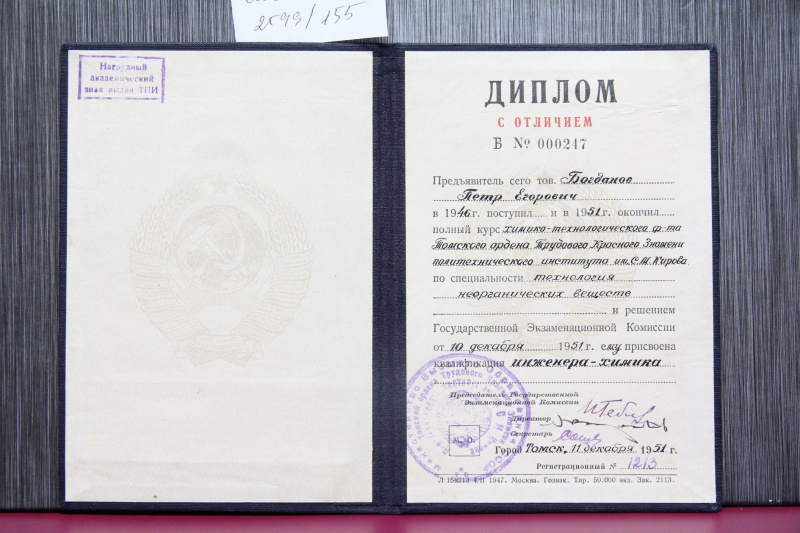 2599/155
Нагрудный
академический
знак выдан ТПИ
ДИПЛОМ
С ОТЛИЧИЕМ
Б № 000247
Предъявитель сего тов. Богданов
Петр Егорович
в 1946 г. поступил и в 1951 г. окончил
полный курс химико-технологического ф-та
Томского ордена Трудового Красного Знамени
политехнического института им. С.М. Кирова
по специальности технология
неорганических веществ
и решением
Государственной Экзаменационной Комиссии
от 10 декабря 1951 г. ему присвоена
квалификация инженера-химика
Председатель Государственной
Экзаменационной Комиссии
Директор
Секретарь
М. П.
Город Томск, 11 декабря 1951 г.
Регистрационный № 1213
Л 158213 4/II 1947. Москва. Гознак. Тир. 50.000 экз. Зак. 2113.